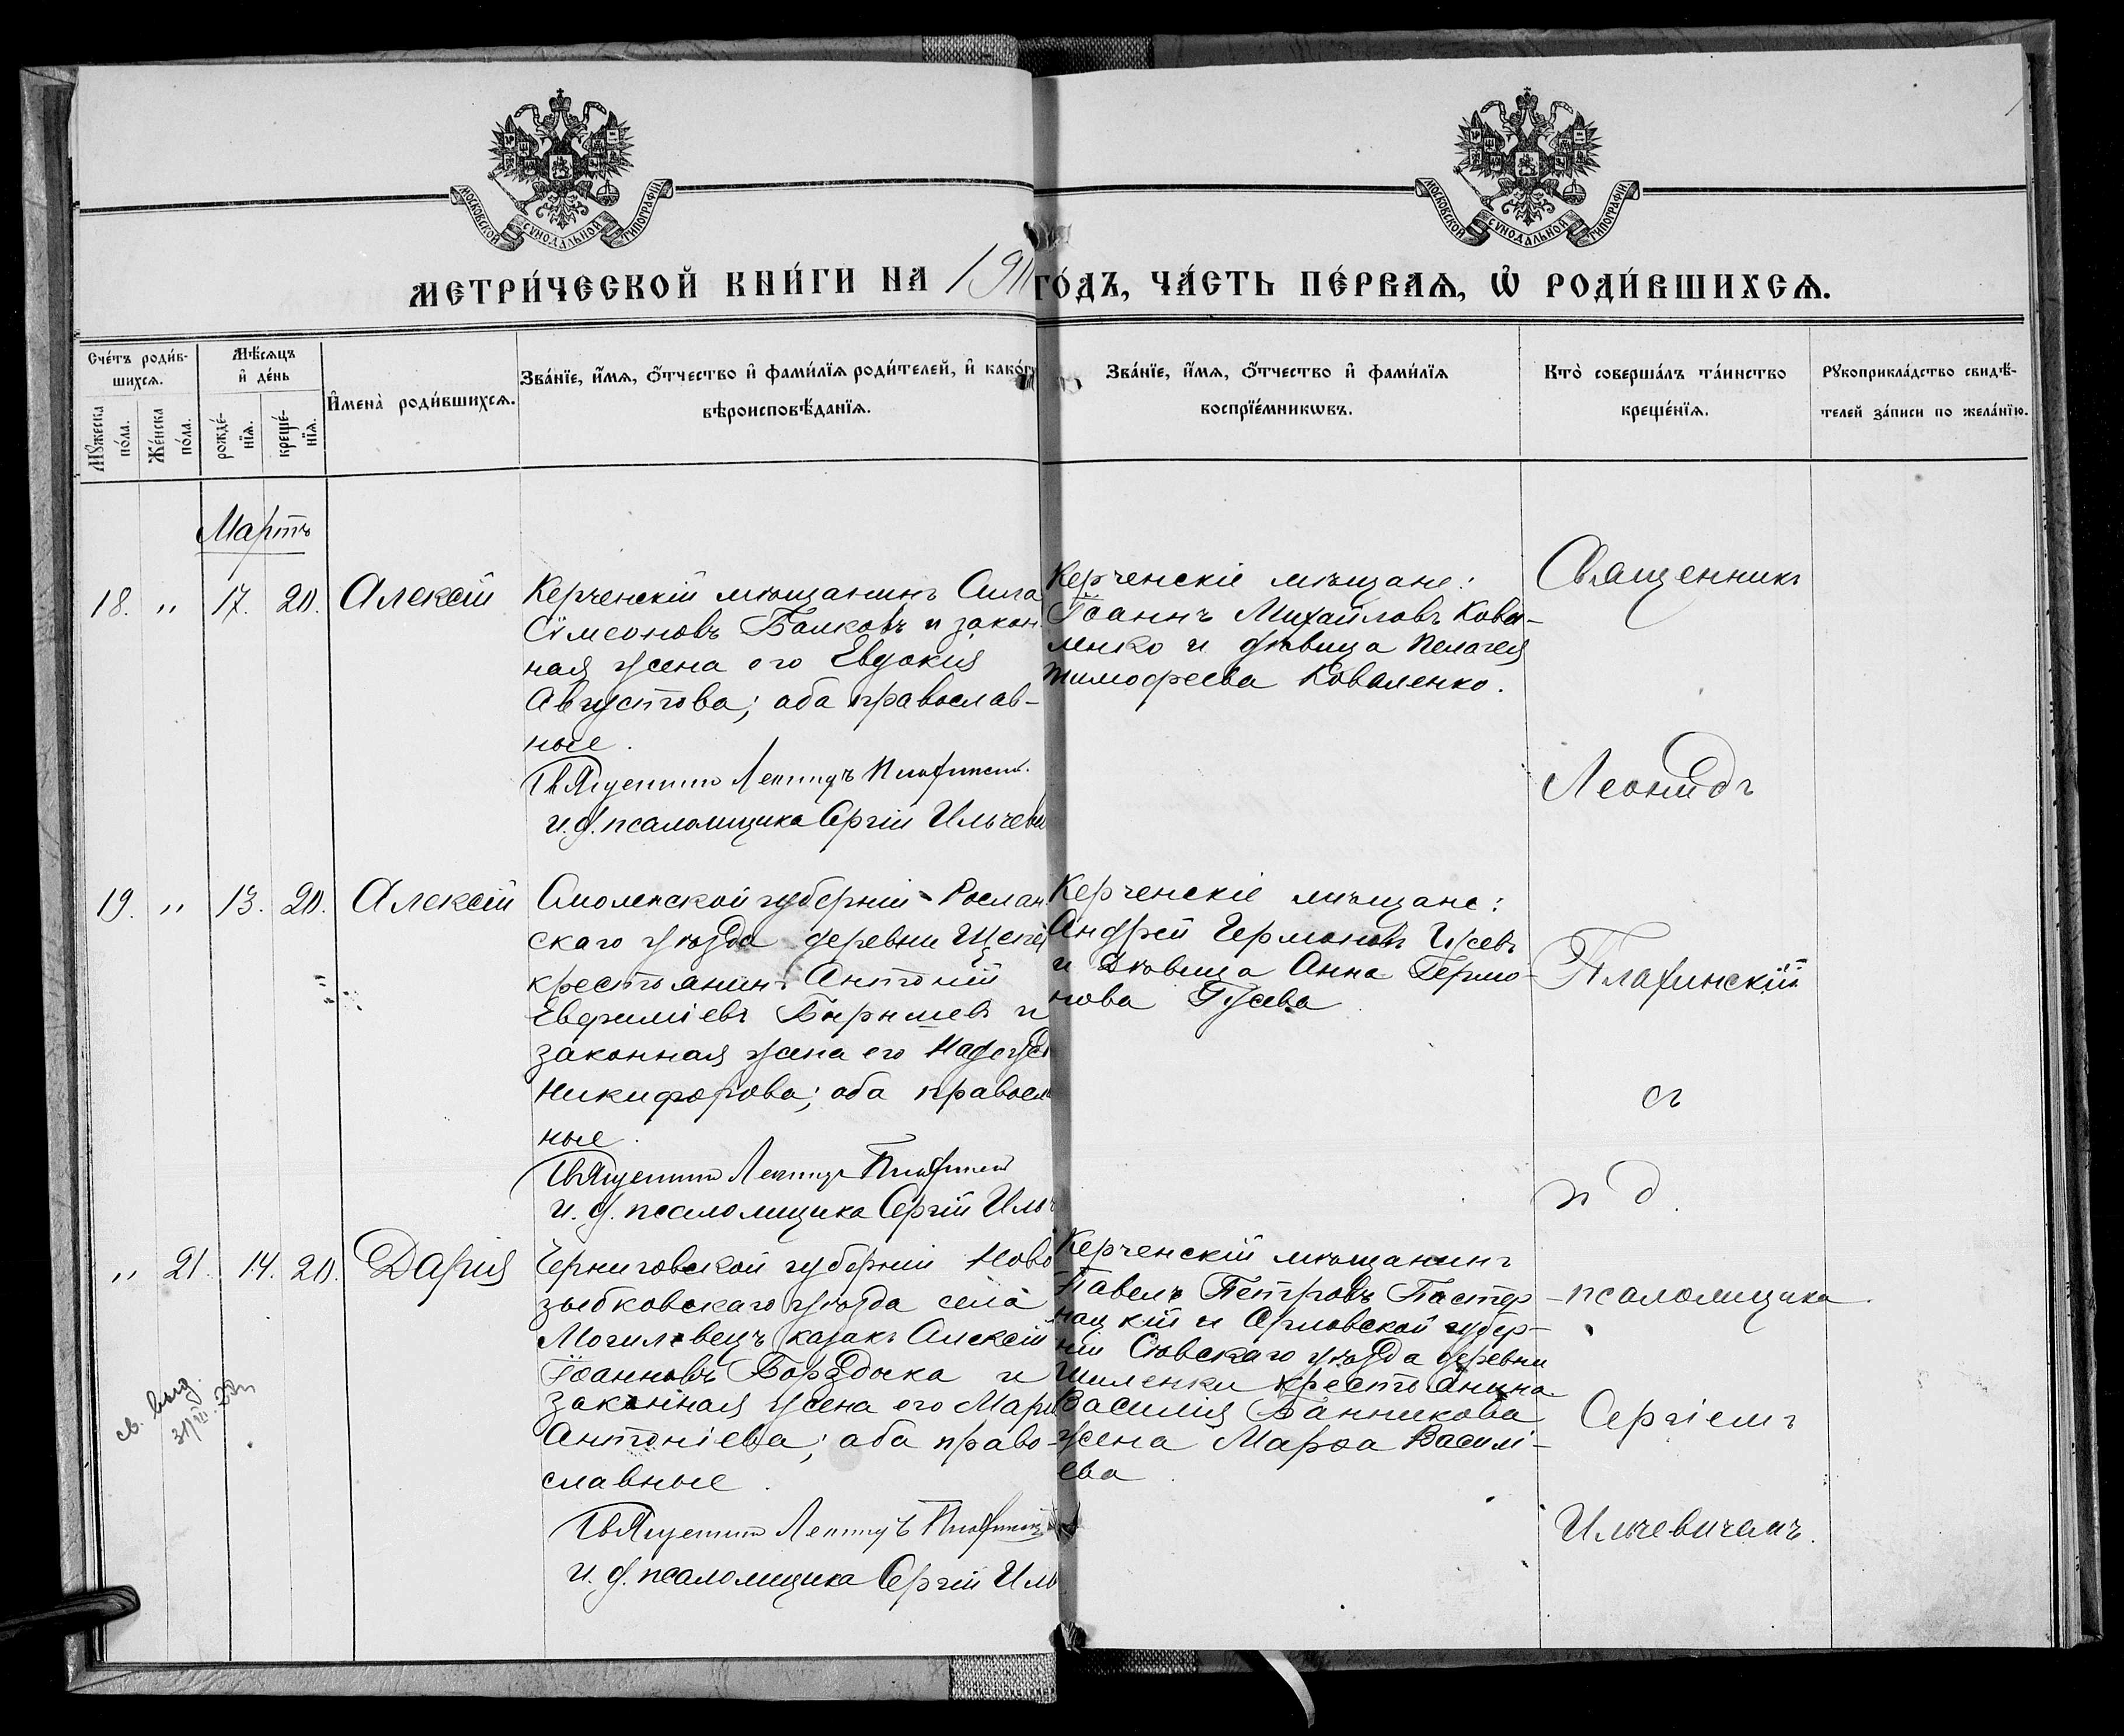 МОСКОВСКОЙ СѴНОДАЛЬНОЙ ТИПОГРАФІИ
МОСКОВСКОЙ СѴНОДАЛЬНОЙ ТИПОГРАФІИ
МЕТРИ́ЧЕСКОЙ КНИ́ГИ НА 1911
ГО́ДЪ, ЧА́СТЬ ПЕ́РВАѦ, Ѽ РОДИ́ВШИХСѦ.
Сче́тъ роди́в-
шихсѧ.
Мꙋ́жеска по́ла.
Же́нска по́ла.
Мѣ́сѧцъ и҆ де́нь
рожде́-нїѧ.
креще́-нїѧ.
И҆мена̀ роди́вшихсѧ.
Зва́нїе, и҆́мѧ, ѻ҆́тчество и҆ фами́лїѧ роди́телей, и҆ како́гѡ
вѣроисповѣ́данїѧ.
Зва́нїе, и҆́мѧ, ѻ҆́тчество и҆ фами́лїѧ
воспрїе́мникѡвъ.
Кто̀ соверша́лъ та́инство
креще́нїѧ.
Рꙋкоприкла́дство свидѣ́-
телей за́писи по жела́нїю.
Мартъ
18. " 17. 20. Алексій
Керченскій мѣщанинъ Сила
Сѵмеоновъ Балковъ и закон
ная жена его Евдокия
Августова; оба православ-
ные.
Священникъ Леонидъ Плафинскій
и. д. псаломщика Сергій Ильчеви
Керченскіе мѣщане:
Іоаннъ Михайловъ Кова-
ленко и дѣвица Пелагея
Тимофеева Коваленко.
19. " 13. 20. Алексій
Смоленской губерніи Рослав
скаго уѣзда деревни
крестьянинъ Антоній
Евфиміевъ и
законная жена его Надежд
Никифорова; оба правосл
ные.
Священникъ Леонидъ Плафинскій
и. д. псаломщика Сергій Ильч
Керченскіе мѣщане:
Андрей Германовъ Гусевъ
и дѣвица Анна Германова
Гусева
" 21. 14. 20. Дарія
Черниговской губерніи Ново
зыбковскаго уѣзда села
Могилевецъ казакъ Алексій
Іоанновъ Бораdыка и
законная жена его Мари
Антоніева; оба право-
славные.
Священникъ Леонидъ Плафинскій
и. д. псаломщика Сергій Иль
Керченскій мѣщанинъ
Павелъ Петровъ Пастер-
нацкій и Орловской губер-
ніи Сѣвскаго уѣзда деревни
Шиленки крестьянина
Василія Банникова
жена Марѳа Василі-
ева.
Священникъ
Леонидъ
Плафинскій
съ
и д.
псаломщика
Сергіемъ
Ильчевичемъ.
св. выд.